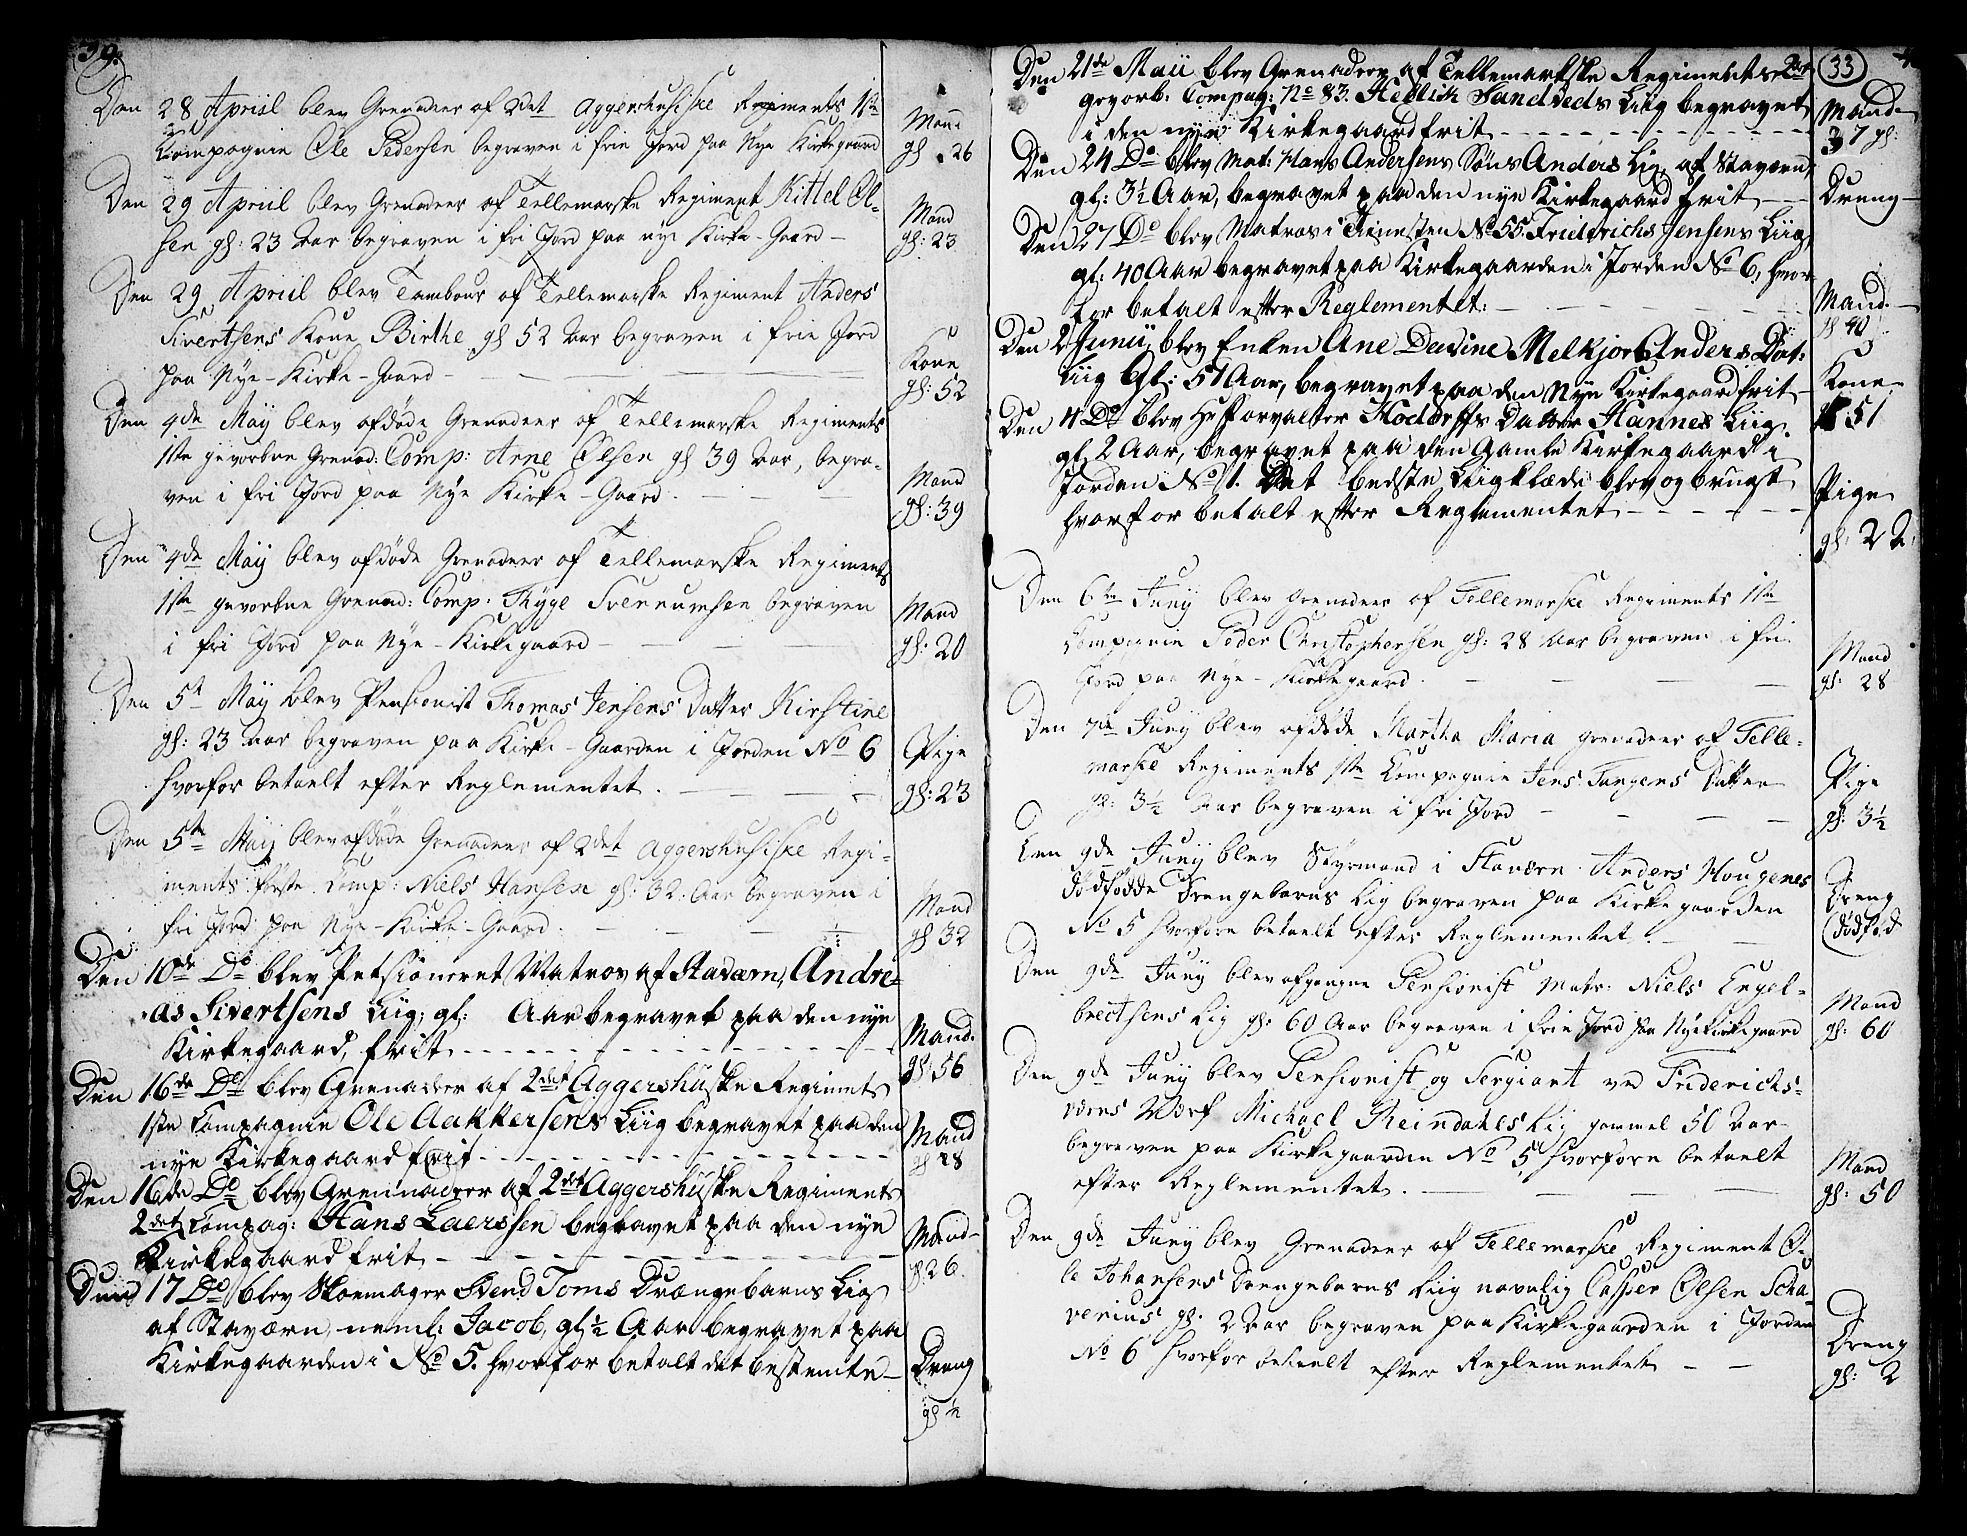 39.
Den 28 Apriil blev Grenadeer af 2det Aggershusiske Regiments 1ste
Compagnie Ole Pedersen begraven i frie Jord paa Nye Kirkegaard
Mand
gl 26
Den 29 Apriil blev Grenadeer af Tellemarske Regiment Kittel Ol-
sen gl: 23 Aar begraven i fri Jord paa nye Kirke-Gaard -
Mand
gl: 23
Den 29 Apriil blev Tambour af Tellemarske Regiment Anders
Sivertsens Kone Birthe gl 52 Aar begraven i frie Jord
paa Nye-Kirke-Gaard -
Kone
gl: 52
Den 4de Maij blev afdøde Grenadeer af Tellemarske Regiments
1ste gevorbne Grenad: Comp: Arne Olsen gl 39 Aar, begra-
ven i fri Jord paa Nye Kirke-Gaard.
Mand
gl: 39
Den 4de Maij blev afdøde Grenadeer af Tellemarske Regiments
1ste gevorbne Grenad: Comp: Thyge Svennumsen begraven
i fri Jord paa Nye-Kirkegaard -
Mand
gl: 20
Den 5te Maij blev Pensionist Thomas Jensens Datter Kirstine
gl: 23 Aar begraven paa Kirke-Gaarden i Jorden No 6
hvorfor betaelt efter Reglementet.
Pige
gl: 23
Den 5te Maij blev afdøde Grenadeer af 2det Aggershusiske Regi-
ments første Comp: Niels Hansen gl: 32 Aar begraven i
fri Jord paa Nye-Kirke-Gaard.
Mand
gl 32
Den 10de Do blev Petsioneret Matros af Staværn, Andre-
as Sivertsens Liig, gl: Aar begravet paa den nye
Kirkegaard, frit
Mand.
gl: 56
Den 16de Do blev Grenadeer af 2det Aggershuske Regimets
1ste Compagnie Ole Aakkersens Liig begravet paa den
nye Kirkegaard frit
Mand
gl 28
Den 16de Do blev Grennadeer af 2det Aggershuske Regiments
2det Compag: Hans Laerssen begravet paa den nye
Kirkegaard frit
Mand
gl 26.
Den 17 Do blev Skoemager Svend Toms Drængebarns Lig
af Staværn, neml: Jacob, gl: 1/2 Aar begravet paa
Kirkegaarden i No 5. hvorfor betalt det bestemte -
Dreng
gl 1/2
33
Den 21de Maii blev Grenadeer af Tellemarkske Regimentets 2det
gevorb: Compag: No 83. Hellik Sandveds Liig begravet
i den nye Kirkegaard frit
Mand
37 gl:
Den 24 Do blev Mat: Hans Andersens Søns Anders Lig, af Staværn,
gl: 3 1/2 Aar, begravet paa den nye Kirkegaard frit
Dreng
Den 27 Do blev Matros i Tienesten No 55. Friderichs Jensens Liig,
gl: 40 Aar begravet paa Kirkegaarden i Jorden No 6, hvor-
for betalt efter Reglementet:
Mand.
gl 40
Den 2 Junii blev Enken Ane Davine Melkjor Anders Dat:
Liig Gl: 51 Aar, begravet paa den Nye Kirkegaard frit
Kone
gl 51
Den 4 Do blev Hr Forvalter Hoddorffs Datter Hannes Liig
gl: 2 Aar, begravet paa den Gamle Kirkegaard i
Jorden No 1. Det bedste Liigklæde blev og brugt
hvorfor betalt efter Reglementet
Pige
gl: 2
Den 6te Junij blev Grenadeer af Tellemarske Regiments 1ste
Compagnie Peder Christophersen gl: 28 Aar begraven i fri
Jord paa Nye-Kirkegaard.
Mand
gl: 28
Den 7de Junij blev afdøde Martha Maria Grenadeer af Telle-
marske Regiments 1ste Compagnie Jens Tangens Datter
gl: 3 1/2 Aar begraven i fri Jord
Pige
gl: 3 1/2
Den 9de Junij blev Styrmand i Staværn Anders Hougenes
dødfødde Drengebarns Lig begraven paa Kirkegaarden
No 5 hvorføre betaelt efter Reglementet.
Dreng
dødfød
Den 9de Junij blev afgangne Pensionist Matr: Niels Engel-
brectsens Lig gl: 60 Aar begraven i frie Jord paa Nye Kirkegaard
Mand
gl: 60
Den 9de Junij blev Pensionist og Sergiant ved Friderichs-
værns Værf Michael Reindahls Lig gammel 50 Aar
begraven paa Kirkegaarden No 5 hvorføre betaelt
efter Reglementet.
Mand
gl: 50
Den 9de Junij blev Grenadeer af Tellemarske Regiment O-
le Johansens Drengebarns Liig navnlig Casper Olsen Scha-
verius gl: 2 Aar begraven paa Kirkegaarden i Jorden
No 6 hvorfor betaelt efter Reglementet
Dreng
gl: 2